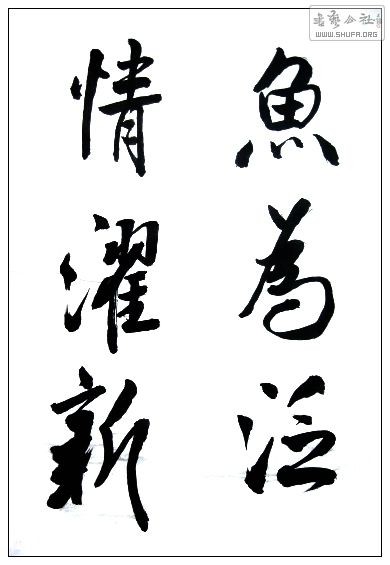 魚為泛
情濯新
书艺公社
WWW.SHUFA.ORG